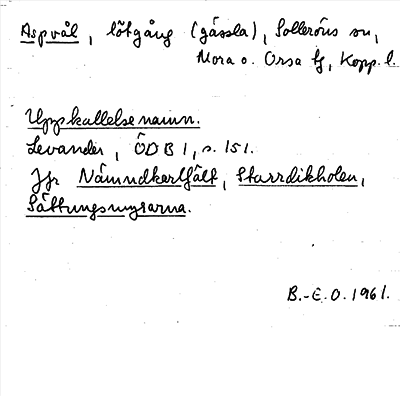 Aspvål, lötgång (gässla), Solleröns sn,
Mora o. Orsa tg, Kopp. l.
Uppkallelsenamn.
Levander, ÖDB I, s. 151.
Jfr Nämndkarlfält, Starrdikholen,
Sättungsmyrarna.
B.-E.O. 1961.